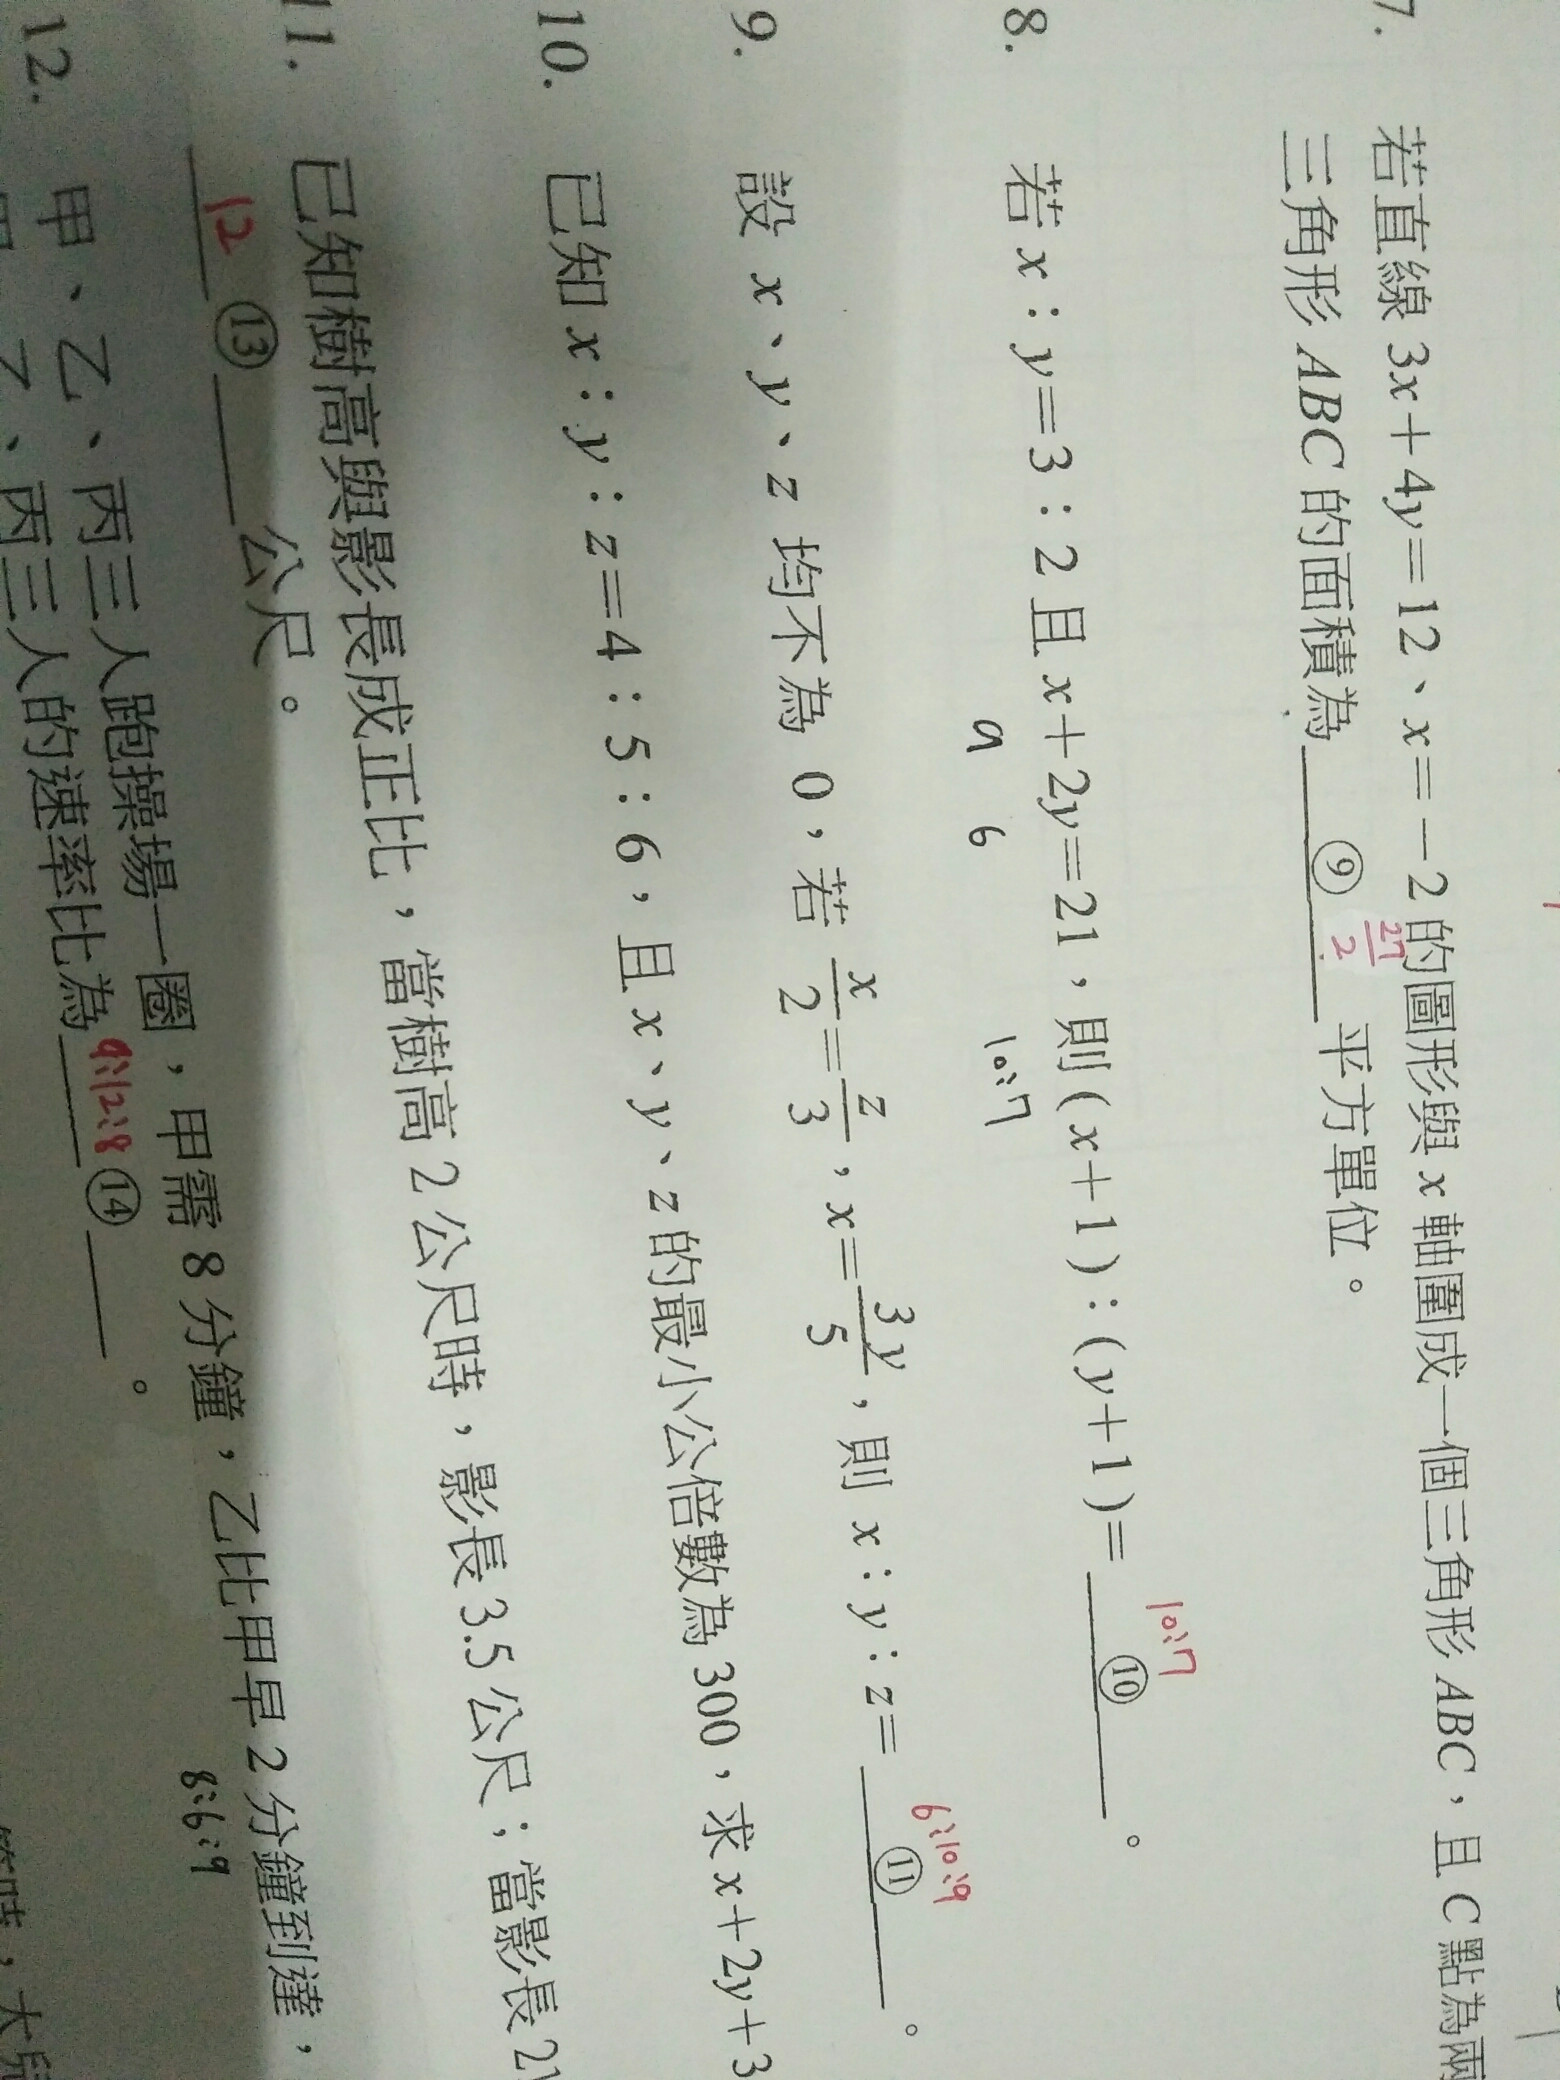 7. 若直線 3x+4y=12、x=-2 的圖形與 x 軸圍成一個三角形 ABC，且 C 點為兩
三角形 ABC 的面積為 ⑨ 27/2 平方單位。
8. 若 x:y=3:2 且 x+2y=21，則 (x+1):(y+1)= 10:7 ⑩ 。
9 6 10:7
9. 設 x、y、z 均不為 0，若 x/2=z/3，x=3y/5，則 x:y:z= 6:10:9 ⑪ 。
10. 已知 x:y:z=4:5:6，且 x、y、z 的最小公倍數為 300，求 x+2y+3
11. 已知樹高與影長成正比，當樹高 2 公尺時，影長 3.5 公尺；當影長 21
12 ⑬ 公尺。
12. 甲、乙、丙三人跑操場一圈，甲需 8 分鐘，乙比甲早 2 分鐘到達，
乙、丙三人的速率比為 9:12:8 ⑭ 。
8:6:9